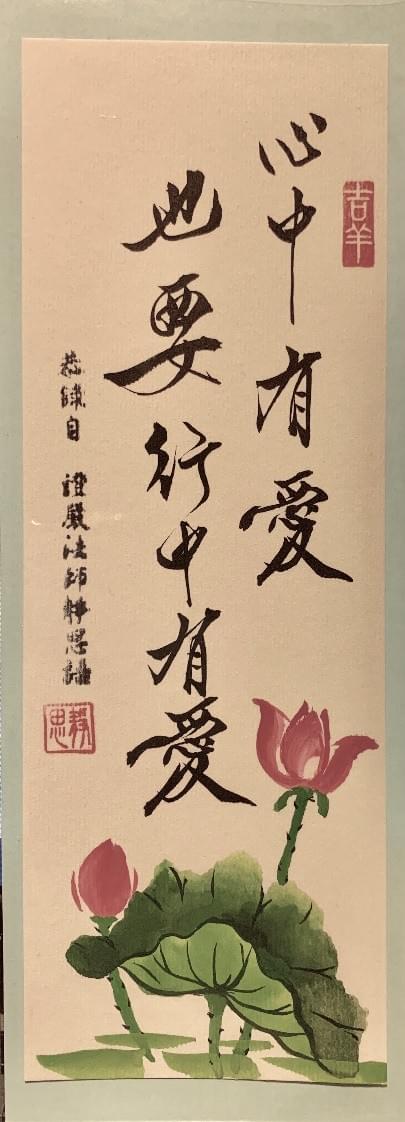 心中有愛
也要行中有愛
恭錄自 證嚴法師靜思語
吉羊
靜思